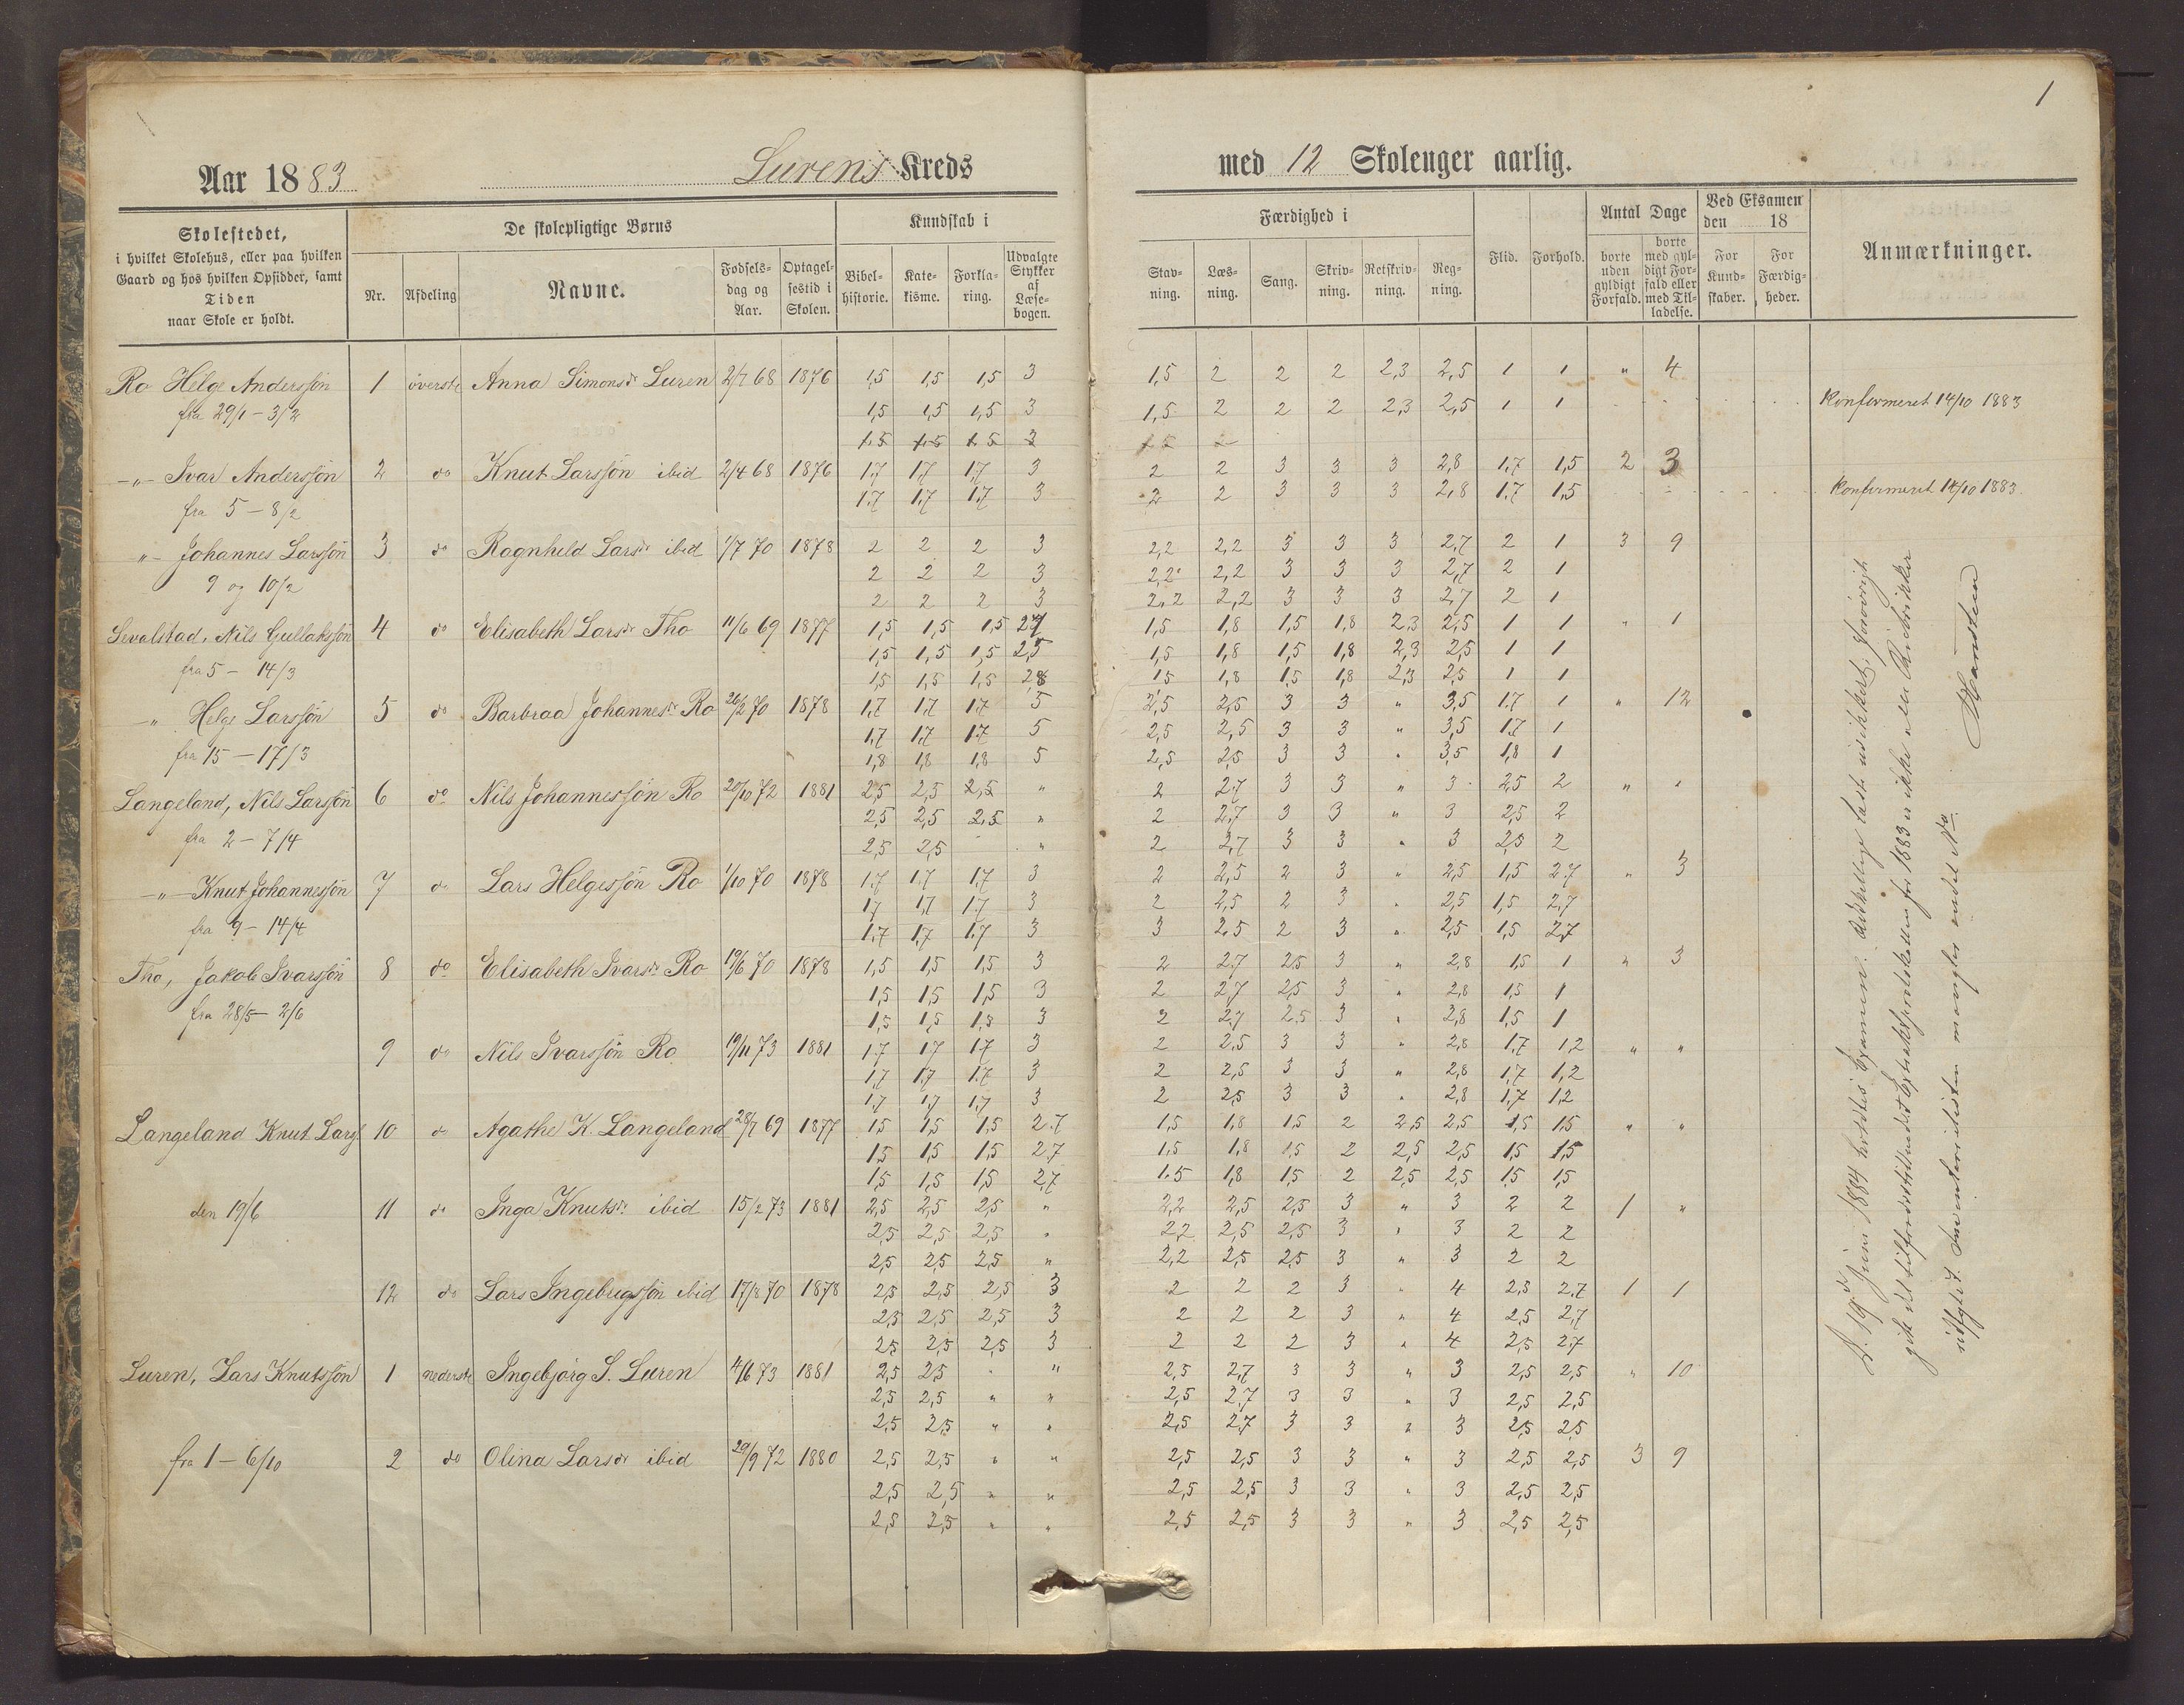 1
Aar 1883 Lurens Kreds
med 12 Skoleuger aarlig.
Skolestedet,
i hvilket Skolehus, eller paa hvilken
Gaard og hos hvilken Opsidder, samt
Tiden
naar Skole er holdt.
De skolepligtige Børns
Nr.
Afdeling
Navne.
Fødsels-
dag og
Aar.
Optagel-
sestid i
Skolen.
Kundskab i
Bibel-
historie.
Kate-
kisme.
Forkla-
ring.
Udvalgte
Stykker
af
Læse-
bogen.
Færdighed i
Stav-
ning.
Læs-
ning.
Sang.
Skriv-
ning.
Retskriv-
ning.
Reg-
ning.
Flid.
Forhold.
Antal Dage
borte
uden
gyldigt
Forfald.
borte
med gyl-
digt For-
fald eller
med Til-
ladelse.
Ved Eksamen
den 18
For
Kund-
skaber.
For
Færdig-
heder.
Anmærkninger.
Ro Helge Anderssøn 1 øverste Anna Simonsdr Luren 2/7 68 1876 1,5 1,5 1,5 3 1,5 2 2 2 2,3 2,5 1 1 " 4
fra 29/1 - 3/2 1,5 1,5 1,5 3 1,5 2 2 2 2,3 2,5 1 1 Konfirmeret 14/10 1883
1.5 1.5 1.5 3 1.5 2
-"- Ivar Anderssøn 2 do Knut Larssøn ibid 2/4 68 1876 1.7 1.7 1.7 3 2 2 3 3 3 2,8 1.7 1,5 2 3
fra 5 - 8/2 1.7 1.7 1.7 3 2 2 3 3 3 2,8 1.7 1,5 Konfirmeret 14/10 1883
"- Johannes Larssøn 3 do Ragnheld Larsdr ibid 1/7 70 1878 2 2 2 3 2,2 2,2 3 3 3 2,7 2 1 3 9
9 og 10/2 2 2 2 3 2,2 2,2 3 3 3 2,7 2 1
2 2 2 3 2,2 2,2 3 3 3 2,7 2 1
Sevalstad, Nils Gullakssøn 4 do Elisabeth Larsdr Tho 11/6 69 1877 1,5 1,5 1,5 2,7 1,5 1,8 1,5 1,8 2,3 2,5 1 1 " 1
fra 5 - 14/3 1,5 1,5 1,5 2,5 1,5 1,8 1,5 1,8 2,3 2,5 1 1
1,5 1,5 1,5 2,8 1,5 1,8 1,5 1,8 2,3 2,5 1 1
-" Helge Larssøn 5 do Barbraa Johannesdr Ro 26/2 70 1878 1,7 1,7 1,7 5 2,5 2,5 3 3 " 3,5 1.7 1 " 12
fra 15 - 17/3 1,7 1,7 1,7 5 2,5 2,5 3 3 " 3,5 1.7 1
1,8 1,8 1,8 5 2,5 2,5 3 3 " 3,5 1,8 1
Langeland, Nils Larssøn 6 do Nils Johannessøn Ro 20/10 72 1881 2,5 2,5 2,5 " 2 2,7 3 3 " 3 2,5 2 " "
fra 2 - 7/4 2,5 2,5 2,5 " 2 2,7 3 3 " 3 2,5 2
2,5 2,5 " 2 2,7 3 3 " 3 2,5 2
-"- Knut Johannessøn 7 do Lars Helgessøn Ro 1/10 70 1878 1.7 1.7 1.7 3 2 2,5 2 3 " 2,5 1,5 2,7 " 3
fra 9 - 14/4 1,7 1,7 1,7 3 2 2,5 2 3 " 2,5 1,5 2,7
1.7 1.7 1.7 3 3 2,5 2 3 " 2,5 1,5 2,7
Tho, Jakob Ivarssøn 8 do Elisabeth Ivarsdr Ro 19/6 70 1878 1,5 1,5 1,5 3 2 2,7 2,5 3 " 2,8 1,5 1 " 3
fra 28/5 - 2/6 1,5 1,5 1,5 3 2 2,7 2,5 3 " 2,8 1,5 1
1,5 1,5 1,5 3 2 2,7 2,5 3 " 2,8 1,5 1
9 do Nils Ivarssøn Ro 19/11 73 1881 1.7 1.7 1.7 3 2 2,5 3 3 " 2,8 1.7 1,2 " "
1,7 1,7 1.7 3 2 2,5 3 3 " 2,8 1,7 1,2
1,7 1,7 1,7 3 2 2,5 3 3 " 2,8 1,7 1,2
Langeland Knut Larss. 10 do Agathe K. Langeland 28/7 69 1877 1,5 1,5 1,5 2.7 1,5 1,8 1,5 2 2,5 2,5 1,5 1,5 " "
1,5 1,5 1,5 2.7 1,5 1,8 1,5 2 2,5 2,5 1,5 1,5
1,5 1,5 1,5 2,7 1.5 1,8 1,5 2 2,5 2,5 1,5 1,5
den 19/6 11 do Inga Knutsdr ibid 15/2 73 1881 2,5 2,5 2,5 " 2,2 2,5 2,5 3 " 3 2 2 1 "
2,5 2,5 2,5 " 2,2 2,5 2,5 3 " 3 2 2
2,5 2,5 2,5 " 2,2 2,5 2,5 3 " 3 2 2
12 do Lars Ingebrigssøn ibid 17/8 70 1878 2,5 2,5 2,5 3 2 2 2 3 " 4 2,5 2,7 1 1
2,5 2,5 2,5 3 2 2 2 3 " 4 2,5 2,7
2,5 2,5 2,5 3 2 2 2 3 " 4 2,5 2,7
Luren, Lars Knutssøn 1 nederste Ingebjørg S. Luren 4/6 73 1881 2,5 2,5 " " 2,5 2,7 3 3 " 3 2,5 2,5 " 10
2,5 2,5 " " 2,5 2,7 3 3 " 3 2,5 2,5
2,5 2,5 " " 2,5 2,7 3 3 " 3 2,5 2,5
fra 1 - 6/10 2 do Olina Larsdr ibid 29/9 72 1880 2,5 2,5 " " 2,5 2,5 3 3 " 3 2,5 2,5 3 9
2,5 2,5 " " 2,5 2,5 3 3 " 3 2,5 2,5
2,5 2,5 " " 2,5 2,5 3 3 " 3 2,5 2,5
19de Juni 1884 holdtes Examen. Adskillige læste usikkert, forøvrigt
gik det tilfredsstillende. for 1883 er ikke alle Rubrikker
udfyldt. Inventarielisten mangler endel No.
Hansteen